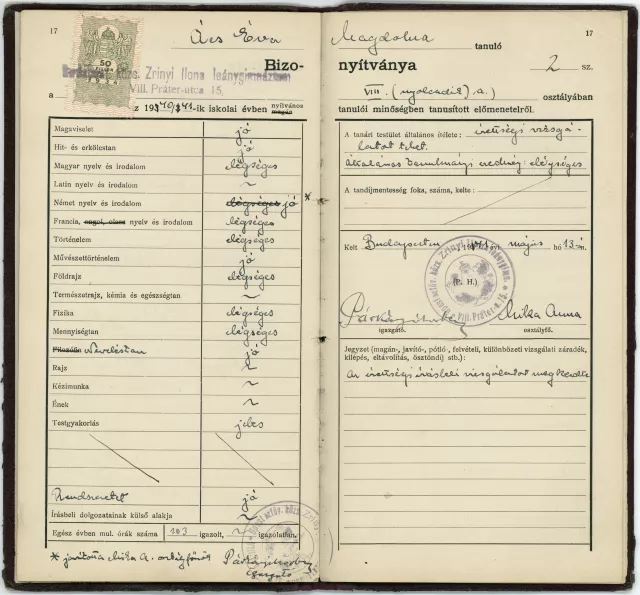 17
50
Ács Éva
Bizo-
Budapest közs. Zrinyi Ilona leánygimnázium
a VIII. Práter-utca 15.
1940/41-ik iskolai évben nyilvános magán
Magaviselet jó
Hit- és erkölcstan jó
Magyar nyelv és irodalom elégséges
Latin nyelv és irodalom ~
Német nyelv és irodalom elégséges jó *
Francia, angol, olasz nyelv és irodalom elégséges
Történelem elégséges
Művészettörténelem jó
Földrajz elégséges
Természetrajz, kémia és egészségtan ~
Fizika elégséges
Mennyiségtan elégséges
Filozófia Neveléstan jó
Rajz ~
Kézimunka ~
Ének ~
Testgyakorlás jeles
Rendszeretet jó
Írásbeli dolgozatainak külső alakja ~
Egész évben mul. órák száma 103 igazolt, ~ igazolatlan.
* javította Mika A. osztályfőnök
igazgató
17
Magdolna tanuló
nyítványa 2 sz.
VIII. (nyolcadik) a.) osztályában
tanulói minőségben tanusított előmenetelről.
A tanári testület általános ítélete: érettségi vizsgá-
latot tehet.
Általános tanulmányi eredmény: elégséges
A tandíjmentesség foka, száma, kelte:
Kelt Budapesten, 1941. évi május hó 13-án
(P. H.)
VIII. Práter-u. 15.
Mika Anna
igazgató. osztályfő.
Jegyzet (magán-, javító-, pótló-, felvételi, különbözeti vizsgálati záradék,
kilépés, eltávolítás, ösztöndíj stb.):
Az érettségi írásbeli vizsgálatot megkezdte